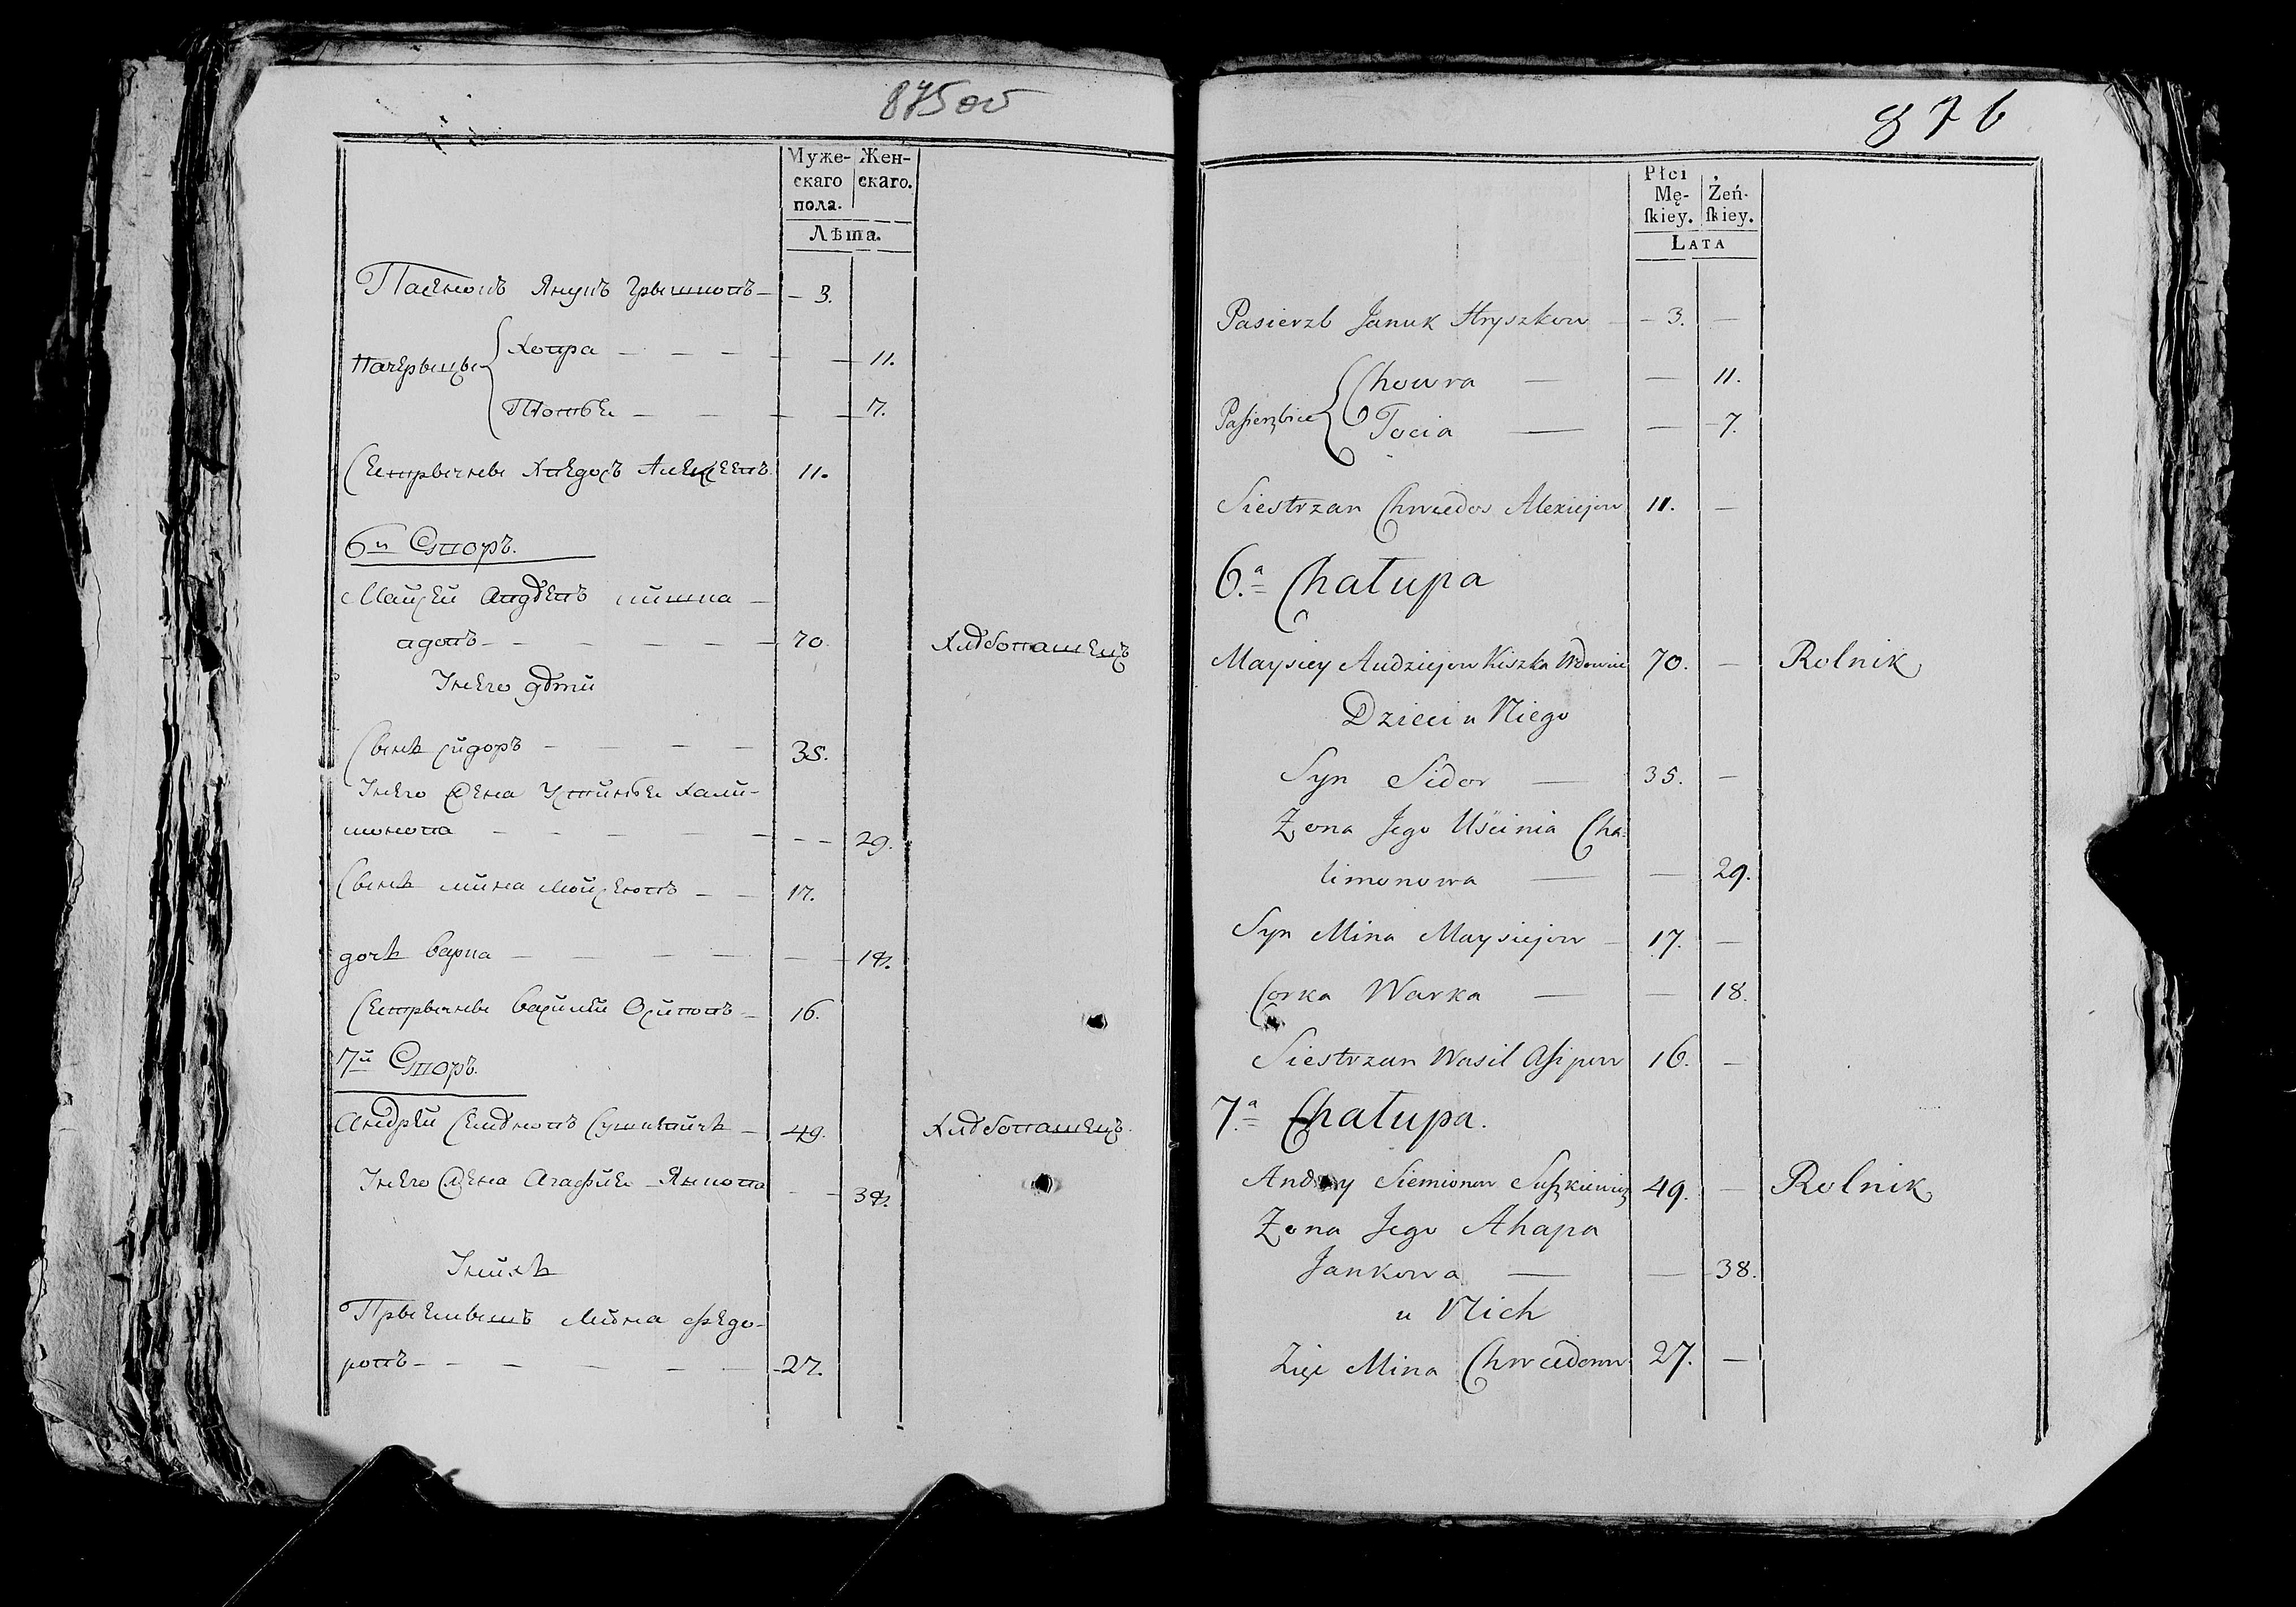 875 об
Муже-
скаго
пола.
Жен-
скаго.
Лѣта.
Пасынокъ Янукъ Грышковъ 3.
Пачерыцы
Ховра 11.
7.
Хведосъ Алексеевъ 11.
6й Двор.
Майсей Авдѣевъ Кишка
вдовъ 70. Хлѣбопашецъ
У него дѣти
Сынъ Сидоръ 35.
У него жена Устинья Хали-
монова 29.
Сынъ Мина Мойсеювъ 17.
дочъ Варка 18.
Василей Осиповъ 16.
7й Двор.
Андрей Семѣновъ Сушкевичъ 49. Хлѣбопашецъ.
У него жена Агафия Янкова 38.
У нихъ
Мина Федо-
ровъ 27.
876
Płci
Mę-
ſkiey.
Żeń-
ſkiey.
Lata
Pasierzb Januk Hryszkow 3. —
Pasierzbice
Chowra — — 11.
Tocia — — 7.
Siestrzan Chwiedos Alexiejow 11. —
6.a Chałupa
Maysiey Audziejow Kiszka Wdowiec 70. — Rolnik
Dzieci u Niego
Syn Sidor — 35. —
Żona Jego Uścinia Cha-
limonowa — — 29.
Syn Mina Maysiejow 17. —
Corka Warka — — 18.
Siestrzan Wasil Asipow 16. —
7.a Chałupa.
Andrey Siemionow Suszkiewicz 49. — Rolnik
Żona Jego Ahapa
Jankowa — — 38.
u Nich
Zięć Mina Chwiedorow 27. —